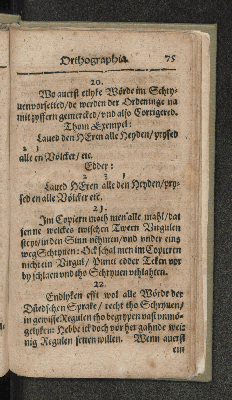 Orthographia. 75
20.
Wo auerst etlyke Wörde im Schry-
uen vorsetted / de werden der Ordeninge na
mit zyffern gemercked / vnd also Corrigered.
Thom Exempel:
Laued den HEren alle Heyden / prysed
2 1
alle en Völcker / etc.
Edder:
2 3 1
Laued HEren alle den Heyden / pry-
sed en alle Völcker etc.
21.
Im Copiern moth men alle mahl / dat
jenne welckes twischen Tween Virgulen
steyt / in den Sinn nehmen / vnd vnder eins
weg Schryuen: Ock schal men im Copieren
nicht ein Virgul / Punct edder Teken vor
by schlaen vnd tho Schryuen vthlahten.
22.
Endlyken efft wol alle Wörde der
Düdschen Sprake / recht tho Schryuen /
in gewisse Regulen tho begrypen vast vnmö-
gelyken: Hebbe ick doch vör her gahnde wei-
nig Regulen setten willen. Wenn auerst
ein